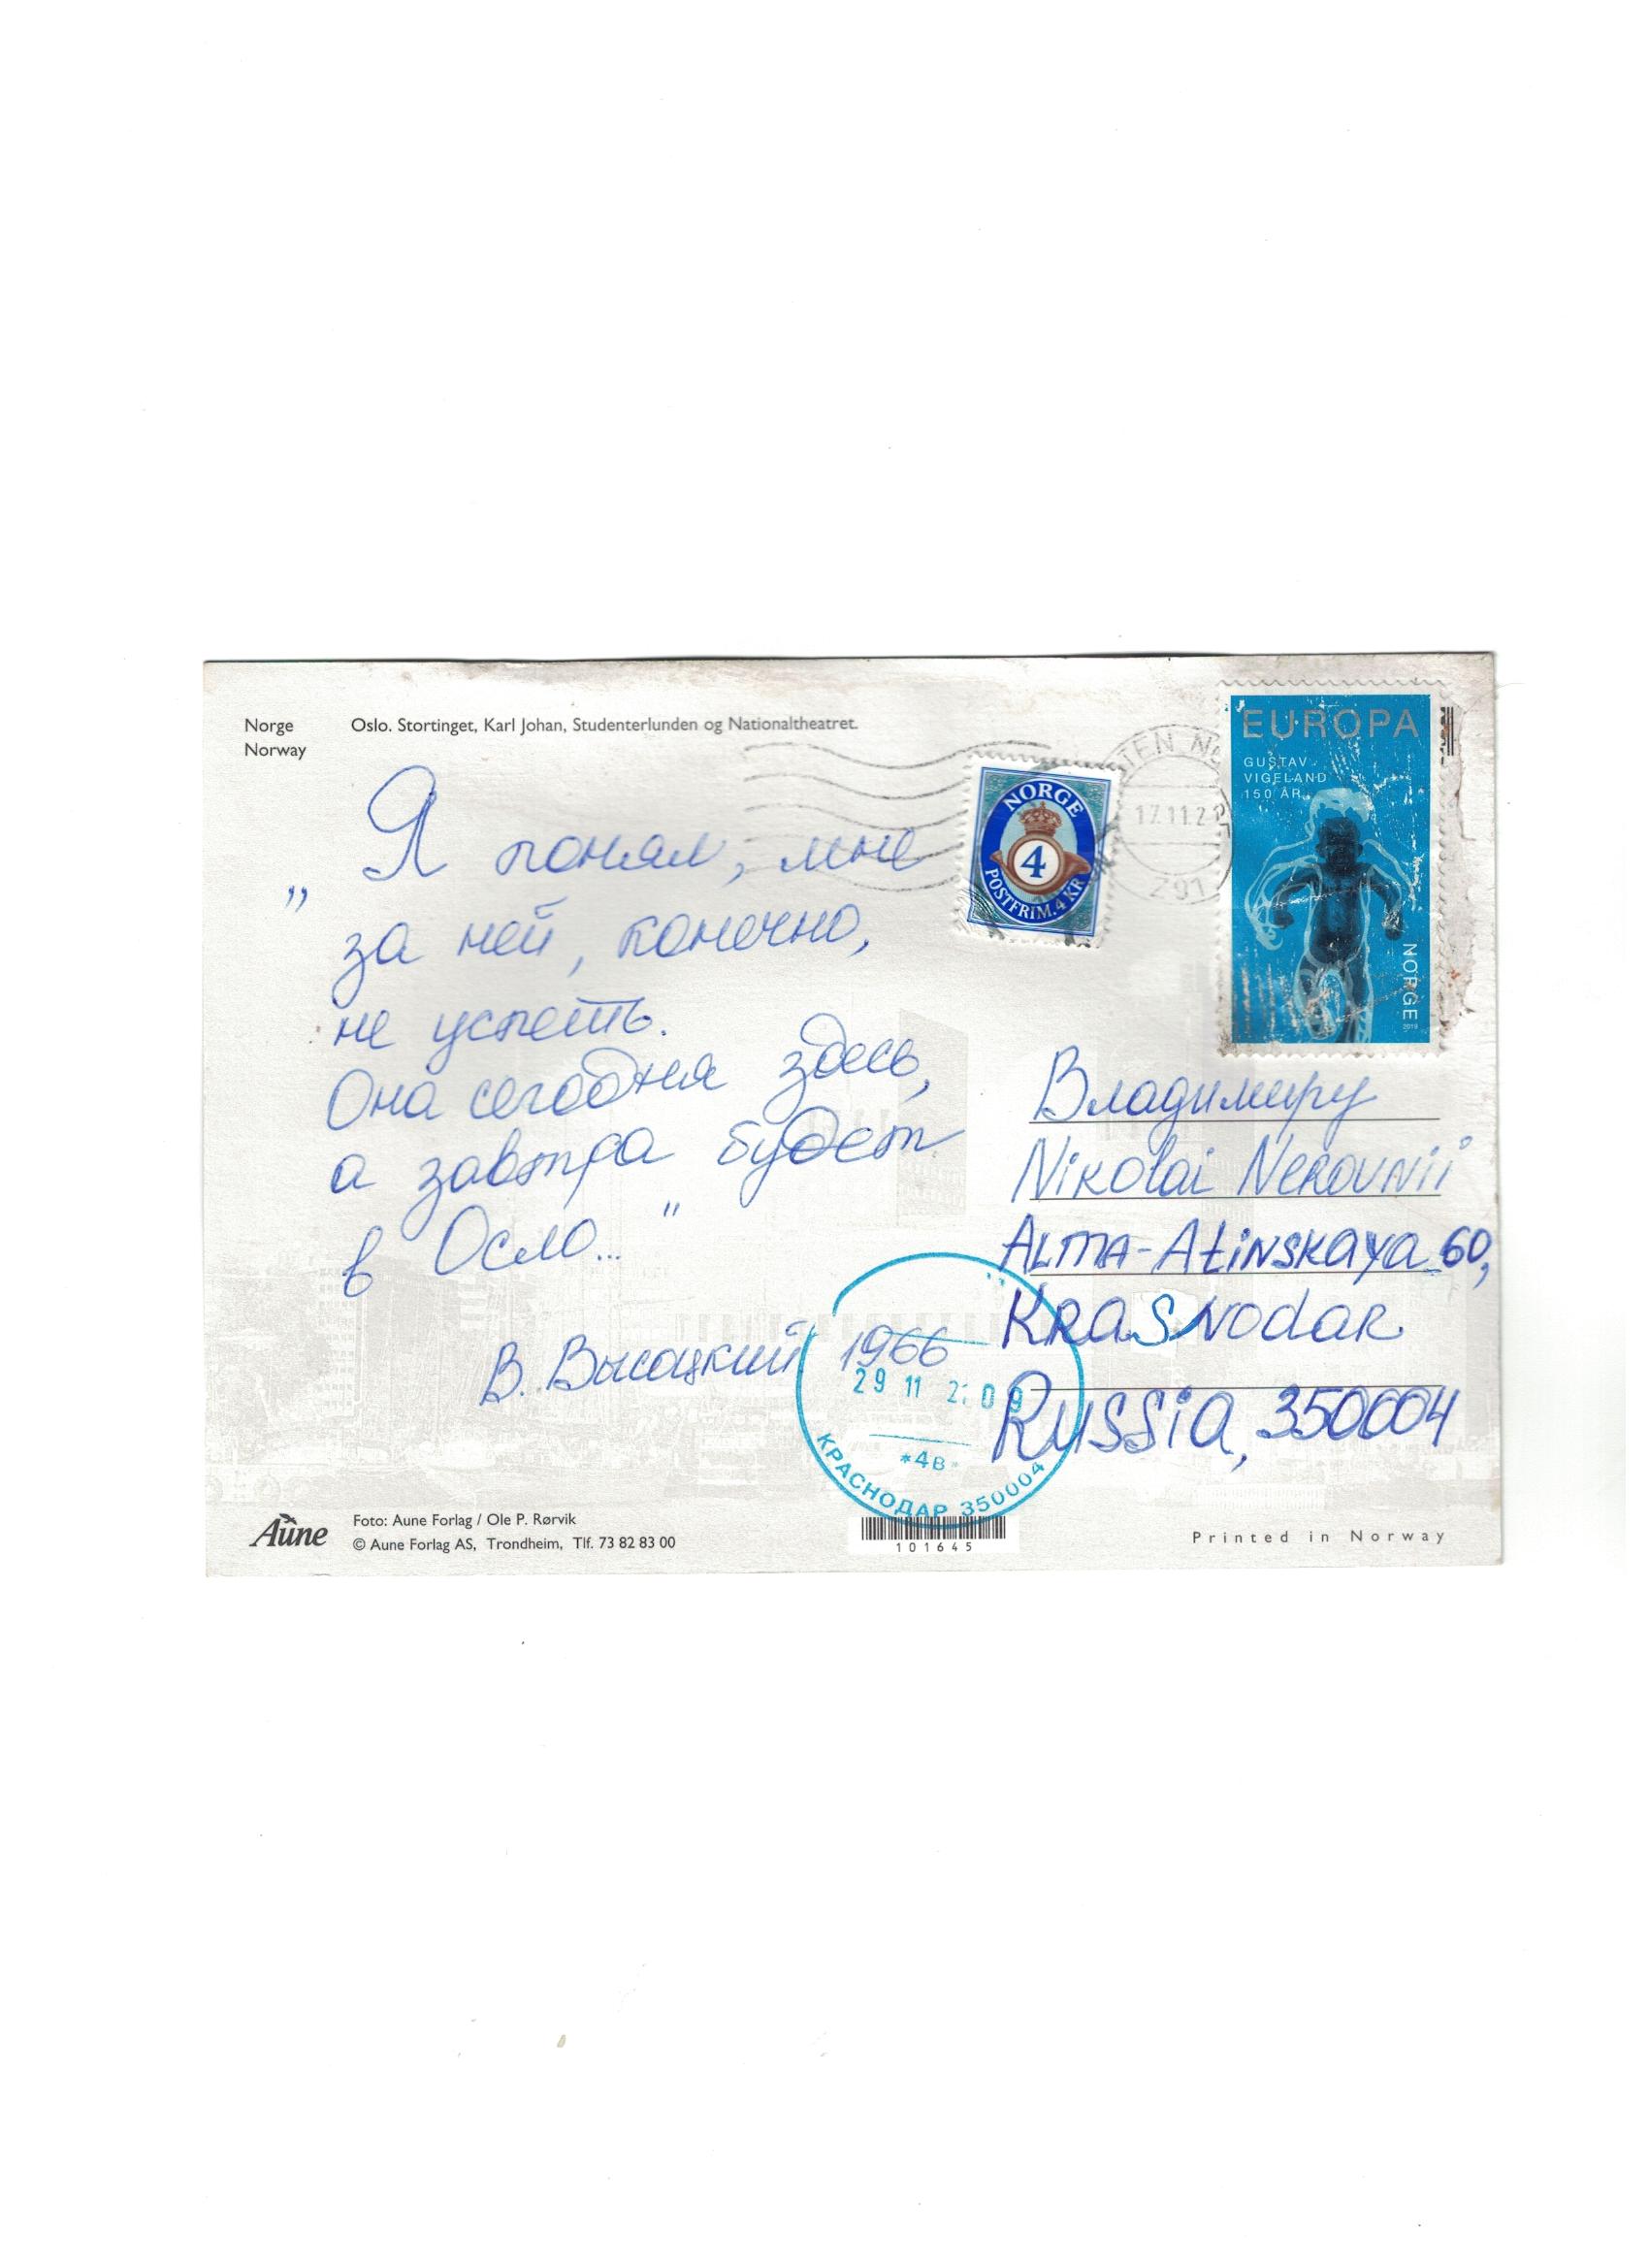 Norge
Norway
Oslo. Stortinget, Karl Johan, Studenterlunden og Nationaltheatret.
„Я понял, мне
за ней, конечно,
не успеть.
Она сегодня здесь,
а завтра будет
в Осло..."
В. Высоцкий 1966
NORGE
4
POSTFRIM. 4 KR
TEN N
17.11.2
291
EUROPA
GUSTAV
VIGELAND
150 ÅR
NORGE
2019
Владимиру
Nikolai Nekovnii
ALMA-Atinskaya 60,
KRASNodar
Russia, 350004
29 11 2 09
*4в*
КРАСНОДАР 350004
Aune
Foto: Aune Forlag / Ole P. Rørvik
© Aune Forlag AS, Trondheim, Tlf. 73 82 83 00
101645
Printed in Norway